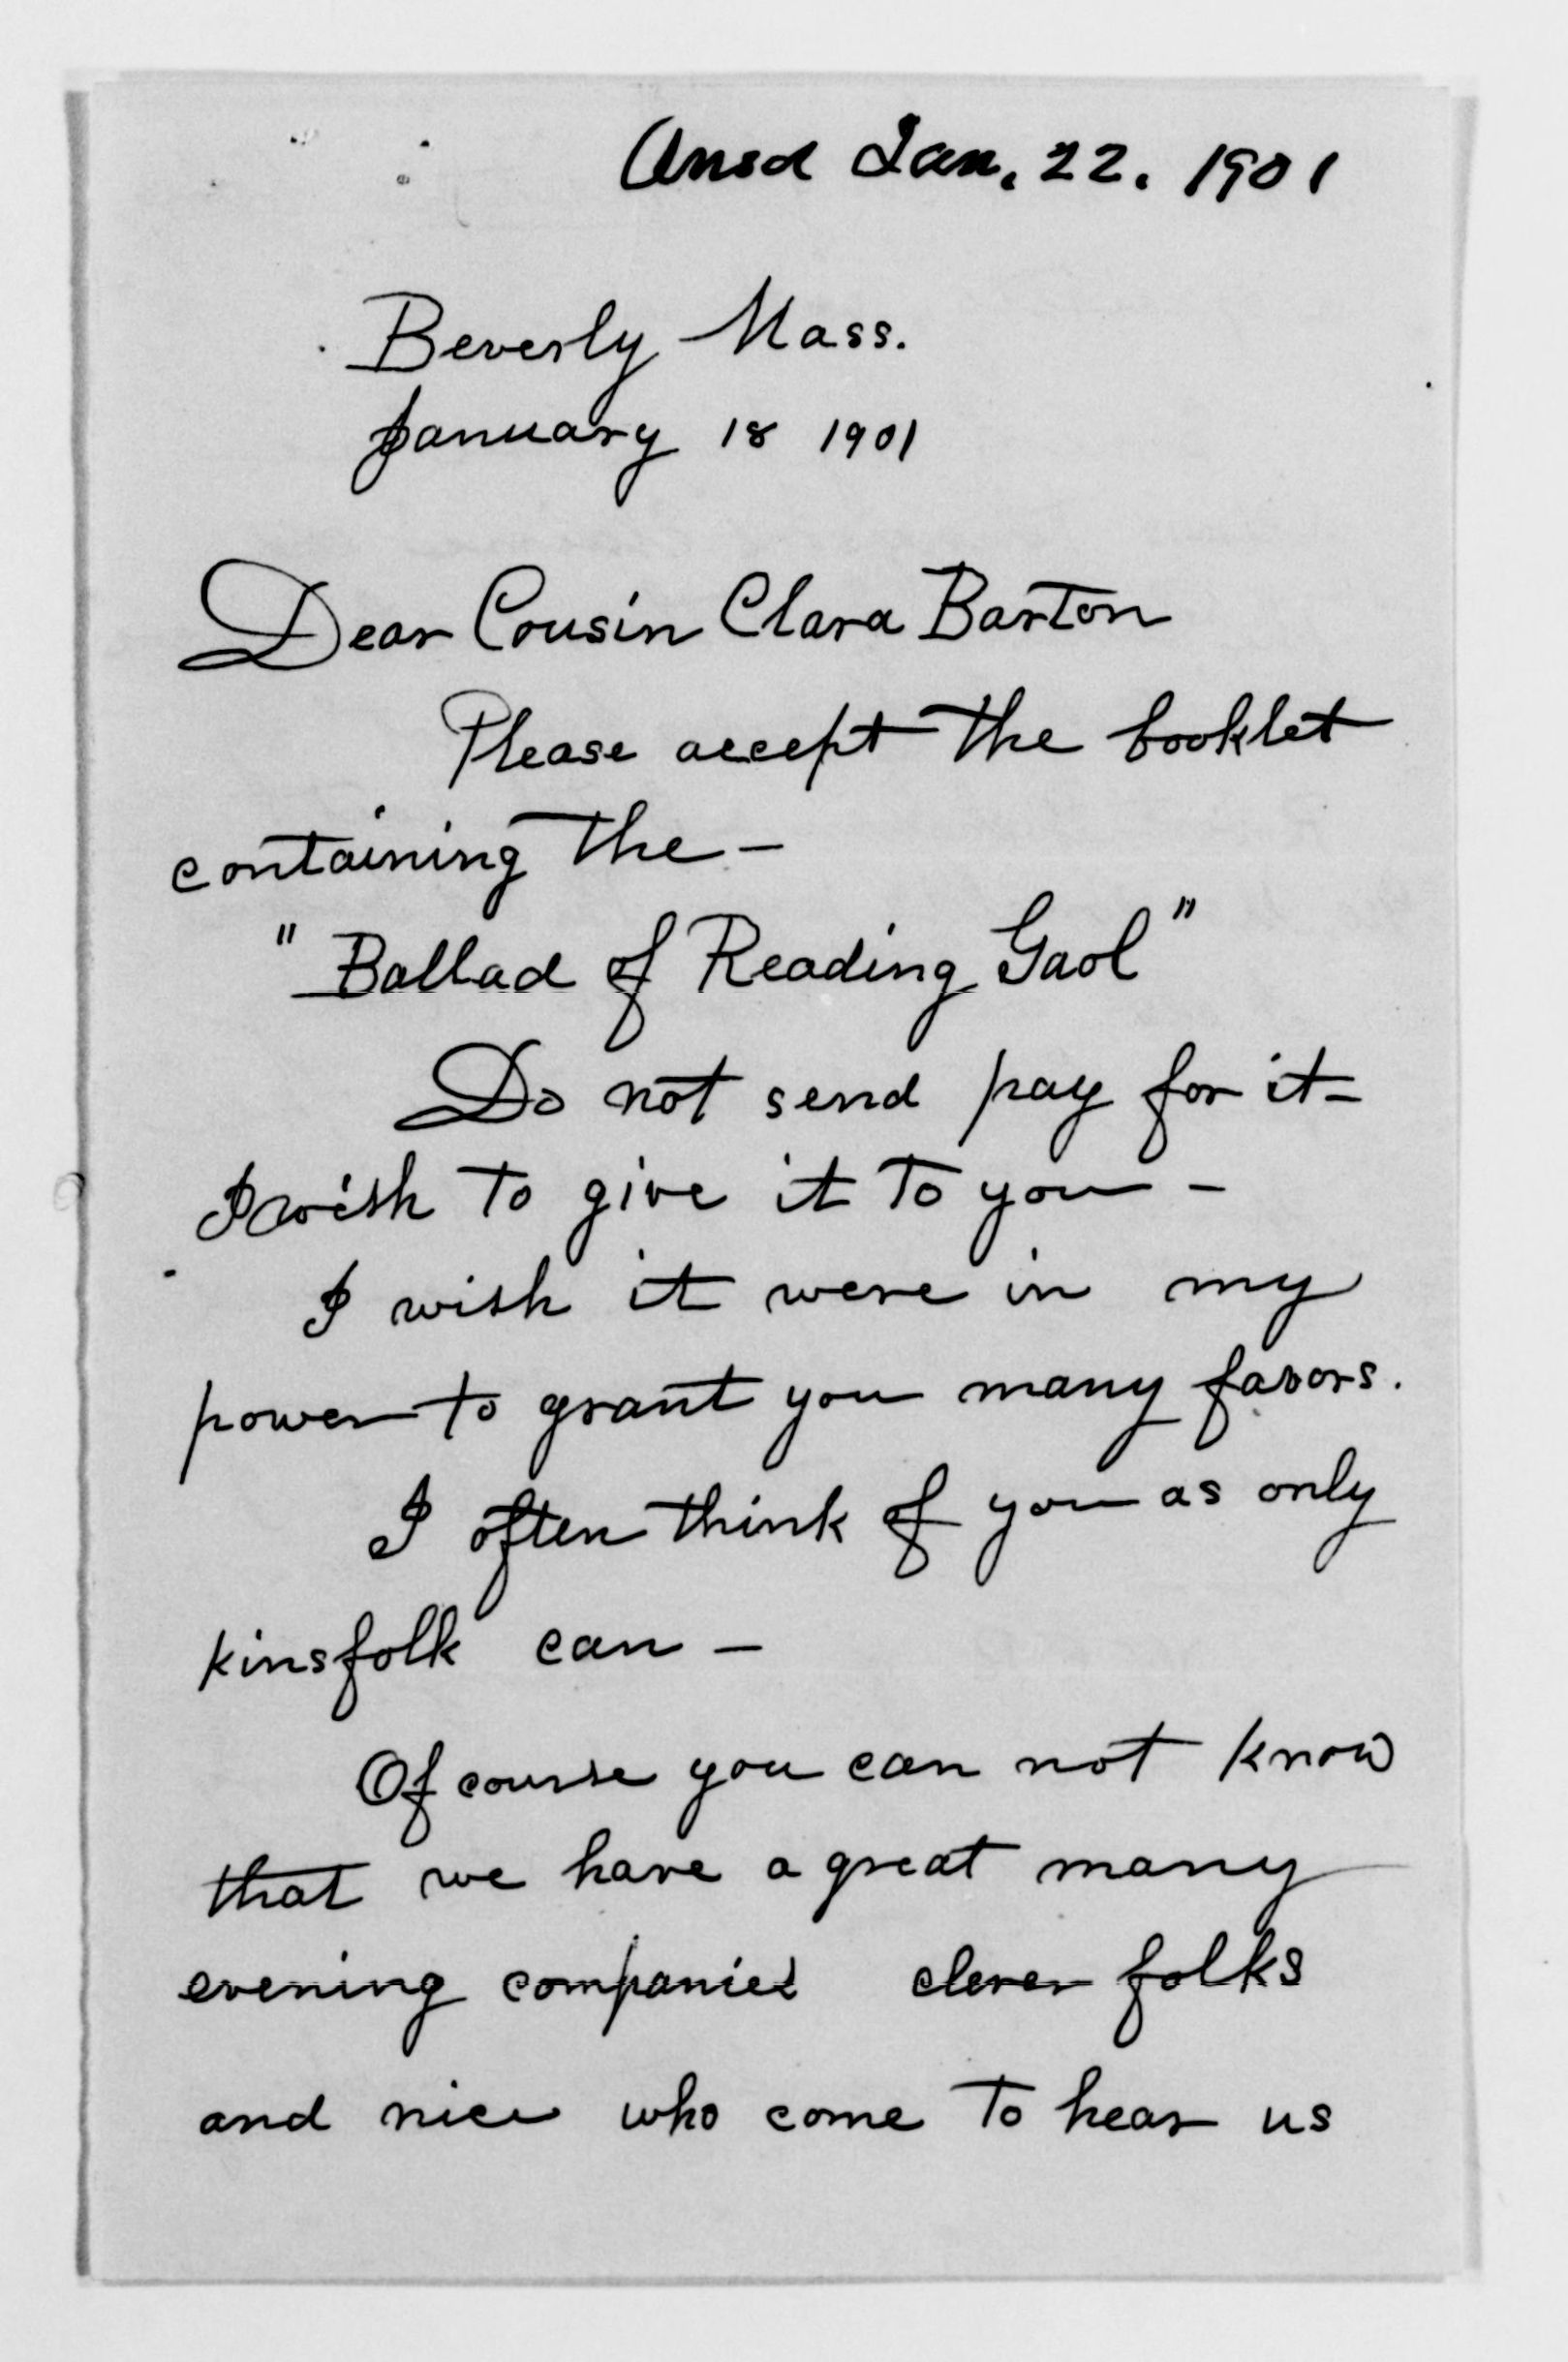 Ansd Jan. 22. 1901
Beverly Mass.
January 18 1901
Dear Cousin Clara Barton
Please accept the booklet
containing the –
"Ballad of Reading Gaol"
Do not send pay for it –
I wish to give it to you –
I wish it were in my
power to grant you many favors.
I often think of you as only
kinsfolk can –
Of course you can not know
that we have a great many
evening companies clever folks
and nice who come to hear us